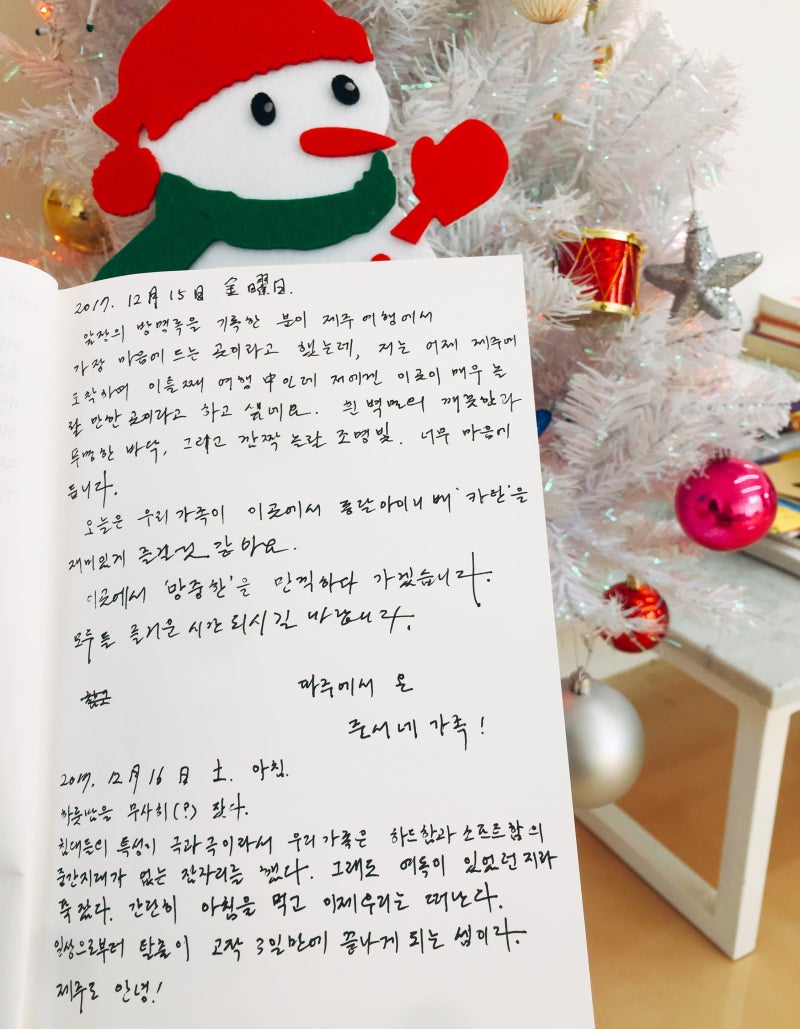 2017. 12月 15日 金曜日.
앞장의 방명록을 기록한 분이 제주여행에서
가장 마음에 드는 곳이라고 했는데, 저는 어제 제주에
도착하여 이틀째 여행 中인데 저에겐 이곳이 매우 놀
랄 만한 곳이라고 하고 싶네요. 흰 벽면의 깨끗함과
투명한 바닥, 그리고 깜짝 놀랄 조명빛. 너무 마음에
듭니다.
오늘은 우리가족이 이곳에서 '카탄'을
재미있게 즐길것 같아요.
이곳에서 '망중한'을 만끽하다 가겠습니다.
모두들 즐거운 시간 되시길 바랍니다.
파주에서 온
준서네 가족!
2017. 12月 16日 土. 아침.
하룻밤을 무사히(?) 잤다.
침대들의 특성이 극과극이라서 우리가족은 하드함과 소프트함의
중간지대가 없는 잠자리를 했다. 그래도 여독이 있었던지라
푹 잤다. 간단히 아침을 먹고 이제우리는 떠난다.
일상으로부터 탈출이 고작 3일만에 끝나게 되는 셈이다.
제주도 안녕!